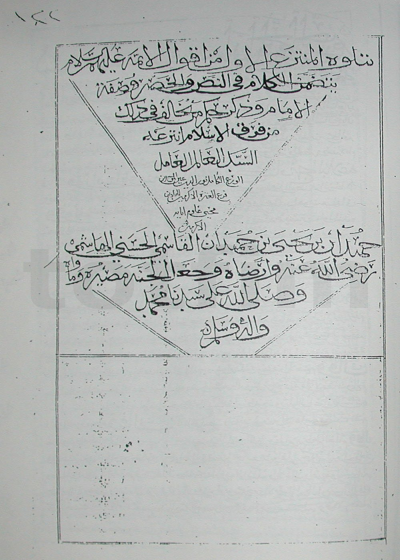 ١٢٢
يتلوه المنتزع الاول من اقوال الائمة عليهم السلام
يتضمن الكلام في النص والحصر وصفة
الامام وذكر حكم من خالف في ذلك
من فرق الاسلام انتزعه
السيد العالم العامل
الورع الكامل نور الدين
محيي علوم ابائه
الاكرمين
حميدان بن يحيى بن حميدان القاسمي الحسني الهاشمي
رضي الله عنه وارضاه وجعل الجنة مصيره وماواه
وصلى الله على سيدنا محمد
واله وسلم